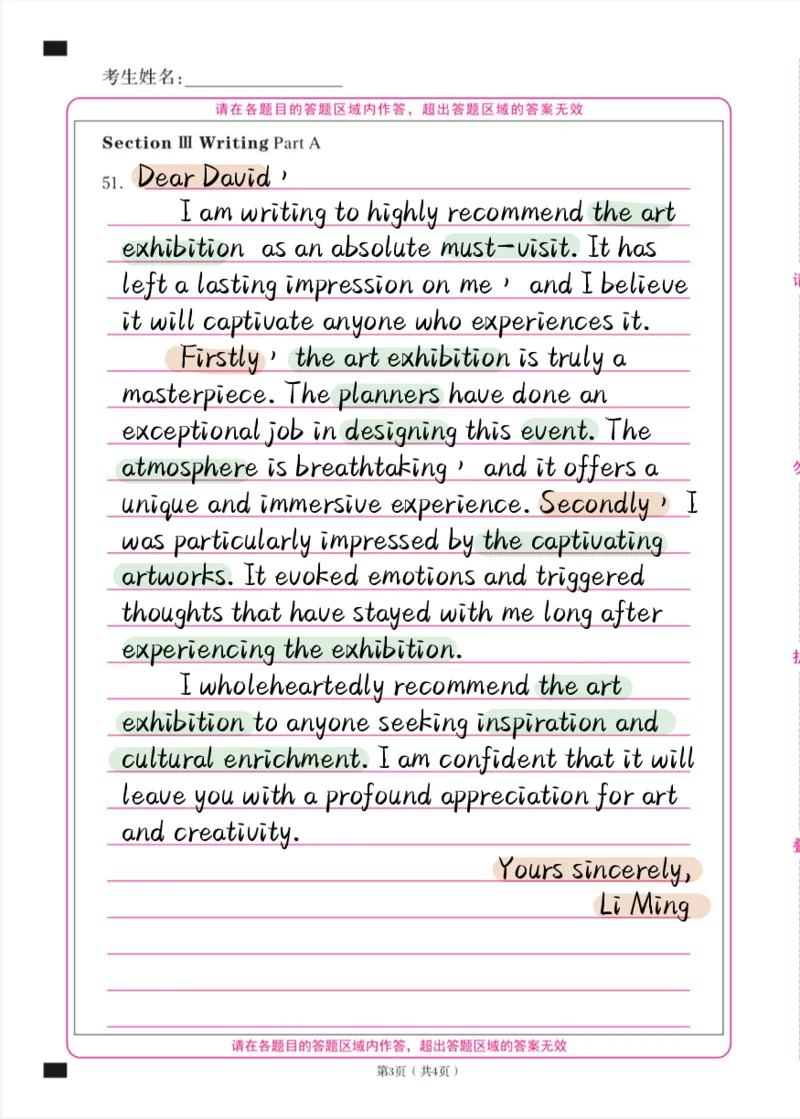 考生姓名:
请在各题目的答题区域内作答，超出答题区域的答案无效
Section Ⅲ Writing Part A
51. Dear David,
I am writing to highly recommend the art
exhibition as an absolute must-visit. It has
left a lasting impression on me, and I believe
it will captivate anyone who experiences it.
Firstly, the art exhibition is truly a
masterpiece. The planners have done an
exceptional job in designing this event. The
atmosphere is breathtaking, and it offers a
unique and immersive experience. Secondly, I
was particularly impressed by the captivating
artworks. It evoked emotions and triggered
thoughts that have stayed with me long after
experiencing the exhibition.
I wholeheartedly recommend the art
exhibition to anyone seeking inspiration and
cultural enrichment. I am confident that it will
leave you with a profound appreciation for art
and creativity.
Yours sincerely,
Li Ming
请在各题目的答题区域内作答，超出答题区域的答案无效
第3页（共4页）